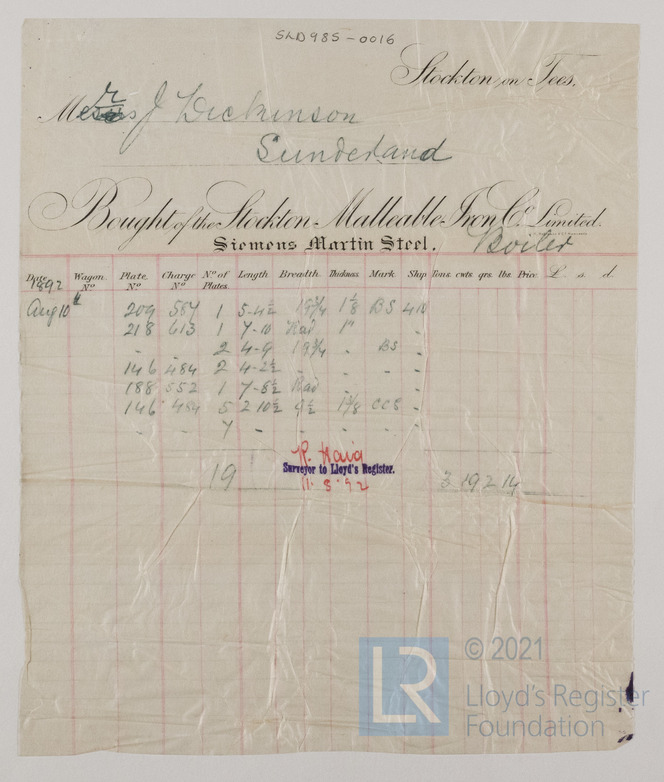 SLD985-0016
Stockton on Tees.
Mr J Dickinson
Sunderland
Bought of the Stockton Malleable Iron Co. Limited.
Siemens Martin Steel. Boiler
Date Wagon No. Plate No. Charge No. No. of Plates. Length Breadth Thickness Mark Ship Tons. cwts. qrs. lbs. Price £ s. d.
1892
Aug 10th 209 587 1 5-4½ 19¾ 1⅛ BS 410
218 613 1 7-10 Rad 1" "
" " 2 4-9 19¾ " BS "
146 484 2 4-2½ " " "
188 552 1 7-8½ Rad " "
146 484 5 2 10½ 9½ CCB "
" 7 " " " " "
R. Haig
19 Surveyor to Lloyd's Register. 3 19 2 14
11.8.92
© 2021
LR Lloyd's Register
Foundation